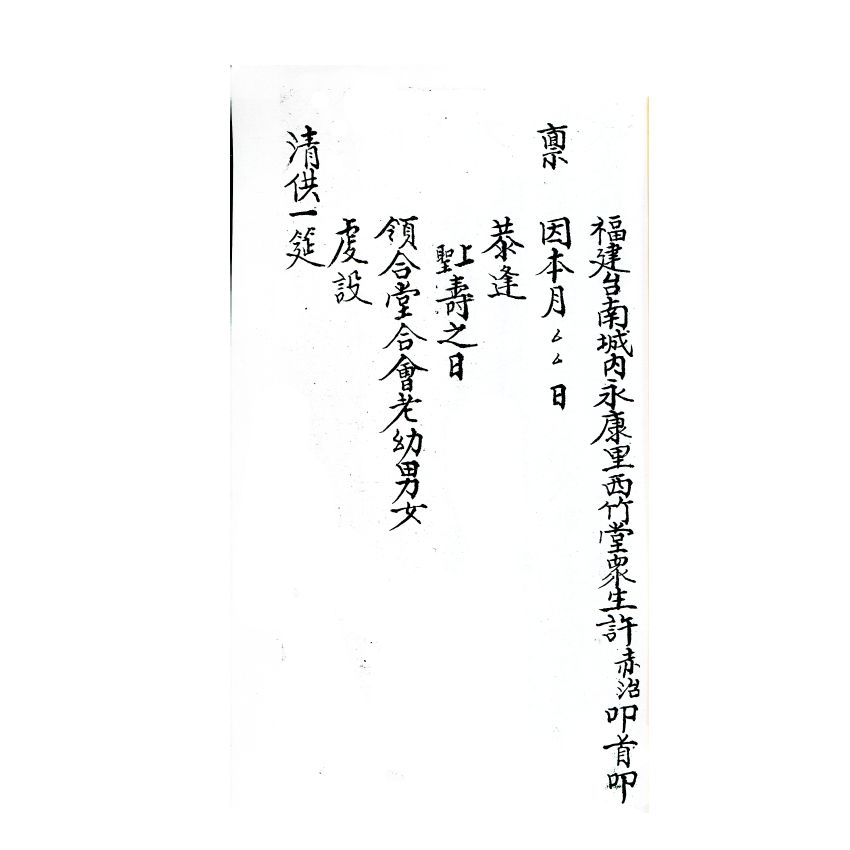 福建台南城内永康里西竹堂眾生許赤治叩首叩
稟 因本月厶厶日
恭逢
上聖壽之日
領合堂合會老幼男女
虔設
清供一筵